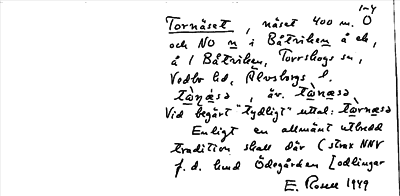 1-4
Tornäset, näset 400 m. O
och NO n i Båtviken å ek,
å 1 Båtviken, Torrskogs sn,
Vedbo hd, Älvsborgs l.
tὰṇæsə, äv. tὰnæsə
Vid begärt "tydligt" uttal: tὰrnæsə
Enligt en allmänt utbredd
tradition skall där (strax NNV
f.d. lund Ödegården [odlingar
E. Rosell 1949